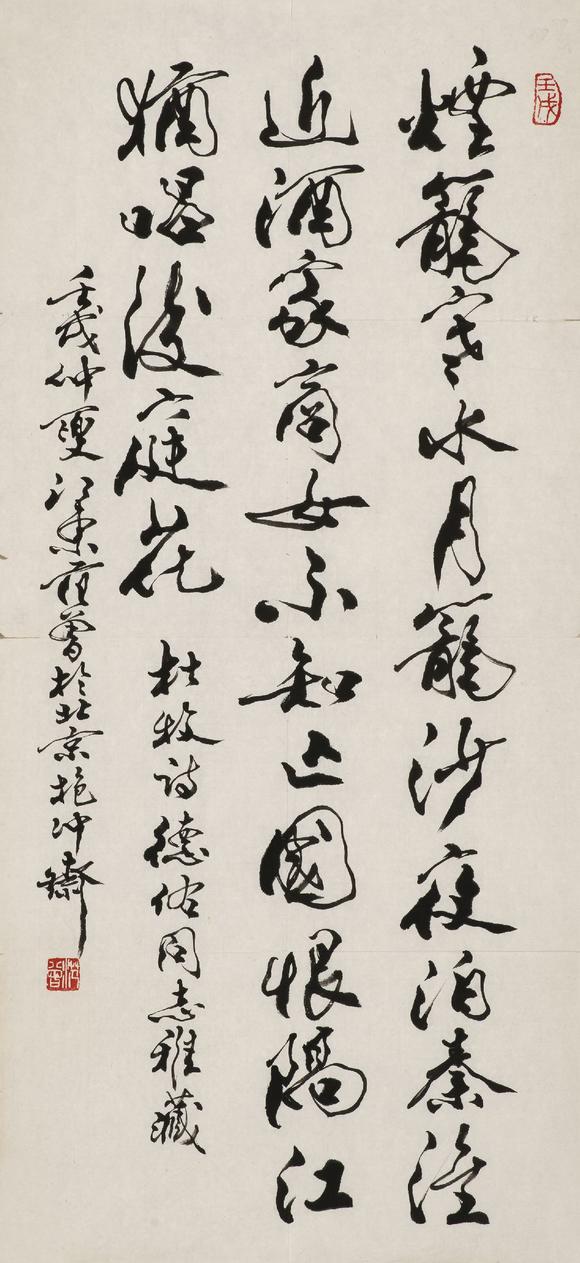 壬戌
煙籠寒水月籠沙夜泊秦淮
近酒家商女不知亡國恨隔江
猶唱後庭花
杜牧詩德佑同志雅藏
壬戌仲夏江東范曾於北京抱冲齋